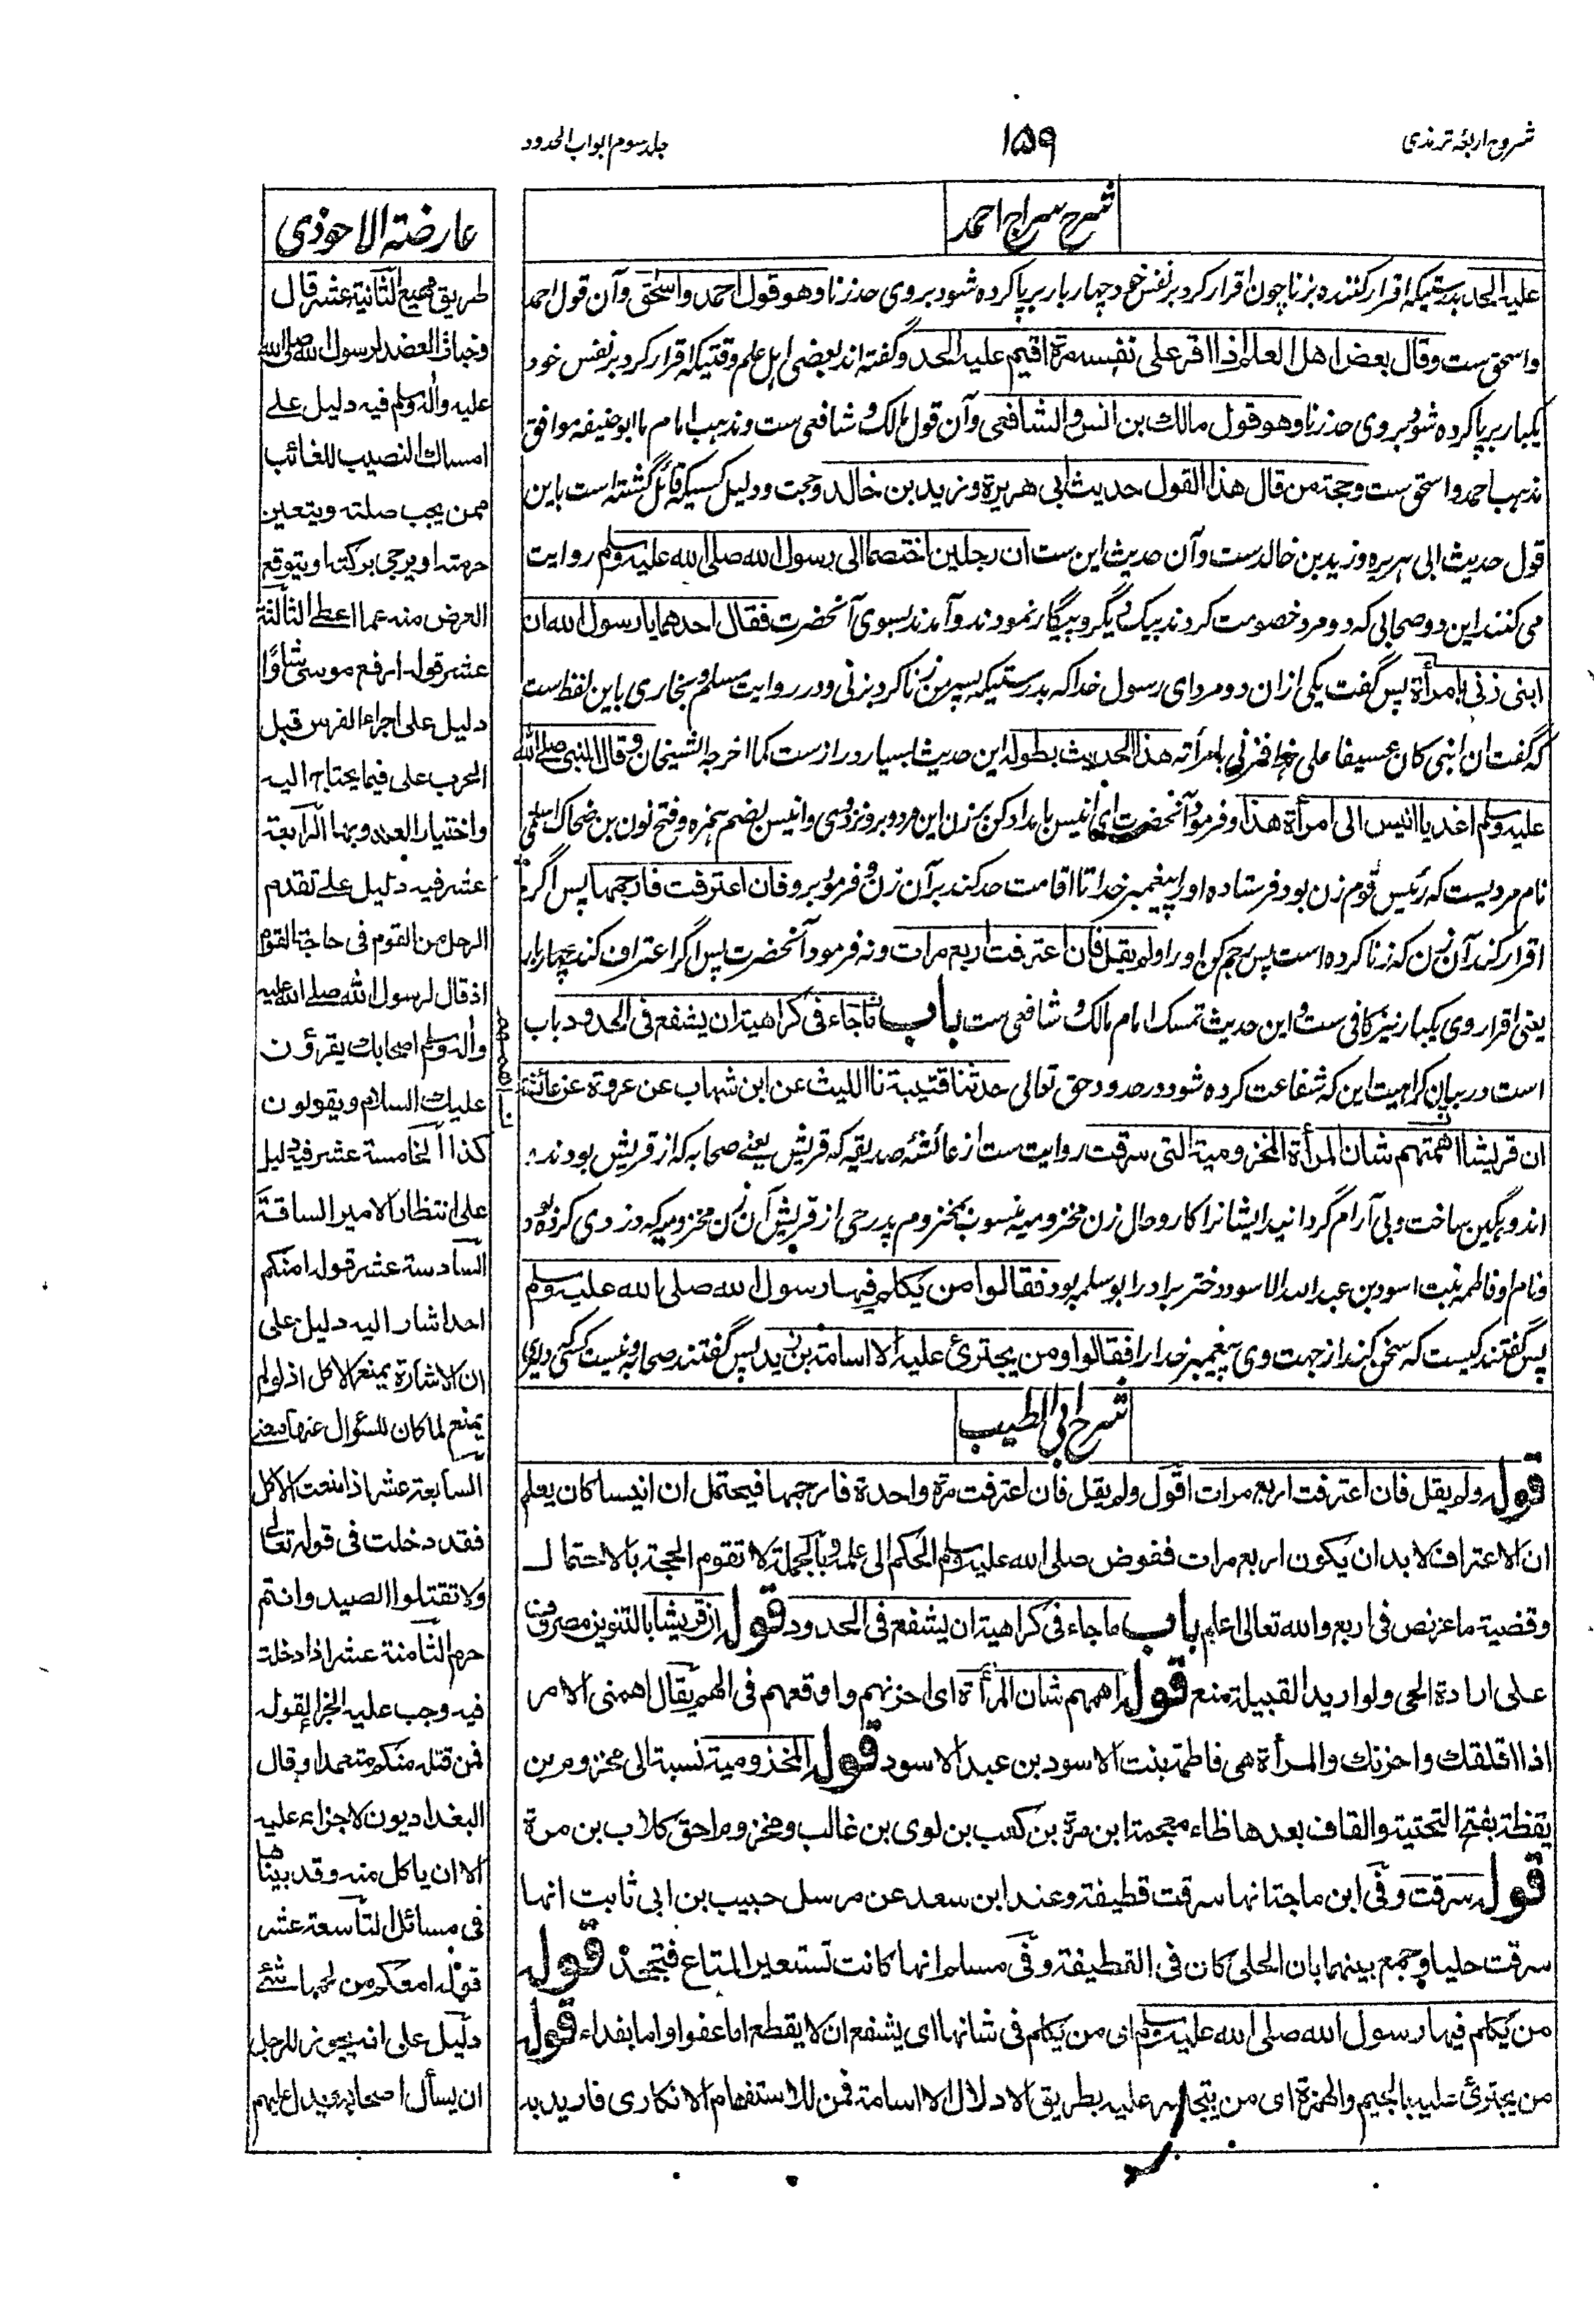 شروح اربعۂ ترمذی
۱۵۹
جلد سوم ابواب الحدود
شرح سراج احمد
علیہ الحد بدرستیکہ اقرار کنندہ بزنا چون اقرار کرد برنفس خود چہار بار برپا کردہ شود بروی حد زنا وهو قول احمد واسحٰق وآن قول احمد
واسحق ست وقال بعض اهل العلم اذا اقر علی نفسه مرة اقیم علیه الحد وگفتہ اند بعضی اہل علم وقتیکہ اقرار کرد برنفس خود
یکبار برپا کردہ شود بروی حد زنا وهو قول مالك بن انس والشافعی وآن قول مالک و شافعی ست ومذہب امام ما ابوحنیفہ موافق
مذہب احمد واسحق ست وحجة من قال هذا القول حدیث ابی هریرة وزید بن خالد وحجت ودلیل کسیکہ قائل گشتہ است باین
قول حدیث ابی ہریرہ وزید بن خالد ست وآن حدیث این ست ان رجلین اختصما الی رسول الله صلی الله علیه وسلم روایت
می کنند این دو صحابی کہ دو مرد خصومت کردند بیک دیگر وپیکار نمودند وآمدند بسوی آنحضرت فقال احدهما یا رسول الله ان
ابنی زنی بامرأة پس گفت یکی ازان دو مرد ای رسول خدا کہ بدرستیکہ پسر من زنا کرد بزنی ودر روایت مسلم وبخاری باین لفظ ست
کہ گفت ان ابنی کان عسیفا علی هذا فزنی بامرأته هذا الحدیث بطوله این حدیث بسیار دراز ست کما اخرجه الشیخان وقال النبی صلی الله
علیه وسلم اغد یا انیس الی امرأة هذا وفرمود آنحضرت ای انیس بامداد کن بزن این مرد وبرو نزد وی وانیس بضم ہمزہ وفتح نون بن ضحاک اسلمی
نام مردیست کہ رئیس قوم زن بود فرستادہ اورا پیغمبر خدا تا اقامت حد کند برآن زن وفرمود برو فان اعترفت فارجمها پس اگر
اقرار کند آن زن کہ زنا کردہ است پس رجم کن اورا ولم یقل فان اعترفت اربع مرات ونہ فرمود آنحضرت پس اگر اعتراف کند چہار بار
یعنی اقرار وی یکبار نیز کافی ست و این حدیث تمسک امام مالک و شافعی ست باب ما جاء فی کراهیة ان یشفع فی الحدود باب
است در بیان کراہیت این کہ شفاعت کردہ شود در حدود حق تعالی حدثنا قتیبة نا اللیث عن ابن شهاب عن عروة عن عائشة
ان قریشا اهمتهم شان المرأة المخزومیة التی سرقت روایت ست از عائشہ صدیقہ کہ قریش یعنے صحابہ کہ از قریش بودند
اندوہگین ساخت وبی آرام گردانید ایشانرا کار وحال زن مخزومیہ منسوب بمخزوم پدر حی از قریش آن زن مخزومیہ کہ دزدی کردہ بود
ونام او فاطمہ بنت اسود بن عبد الاسود دختر برادر ابوسلمہ بود فقالوا من یکلم فیها رسول الله صلی الله علیه وسلم
پس گفتند کیست کہ سخن کند از جہت وی پیغمبر خدا را فقالوا ومن یجترئ علیه الا اسامة بن زید پس گفتند صحابہ و نیست کہ کسی دلیری
شرح ابی الطیب
قوله ولم یقل فان اعترفت اربع مرات اقول ولم یقل فان اعترفت مرة واحدة فارجمها فیحتمل ان انیسا کان یعلم
ان الاعتراف لا بد ان یکون اربع مرات ففوض صلی الله علیه وسلم الحکم الی علمه وبالجملة لا تقوم الحجة بالاحتمال
وقضیة ماعز نص فی اربع والله تعالی اعلم باب ما جاء فی کراهیة ان یشفع فی الحدود قوله ان قریشا بالتنوین مصروف
علی ارادة الحی ولو ارید القبیلة منع قوله اهمهم شان المرأة ای احزنهم واوقعهم فی الهم یقال اهمنی الامر
اذا اقلقك واحزنك والمرأة هی فاطمة بنت الاسود بن عبد الاسود قوله المخذومیة نسبة الی مخزوم بن
یقظة بفتح التحتیة والقاف بعدها ظاء معجمة ابن مرة بن کعب بن لوی بن غالب ومخزوم اخو کلاب بن مرة
قوله سرقت وفی ابن ماجة انها سرقت قطیفة وعند ابن سعد عن مرسل حبیب بن ابی ثابت انها
سرقت حلیا وجمع بینهما بان الحلی کان فی القطیفة وفی مسلم انها کانت تستعیر المتاع فتجحد قوله
من یکلم فیها رسول الله صلی الله علیه وسلم ای من یکلم فی شانها ای یشفع ان لا یقطع اما عفوا واما بفداء قوله
من یجترئ علیه بالجیم والهمزة ای من یتجاسر علیه بطریق الادلال الا اسامة فمن للاستفهام الانکاری فارید به
عارضة الاحوذی
طریق صحیح الثانیة عشر قال
وخبأت العضد لرسول الله صلی الله
علیه واله وسلم فیه دلیل علے
امساك النصیب للغائب
ممن یجب صلته ویتعین
حرمته او یرجی برکتها ویتوقع
العرض منه عما اعطی الثالثة
عشر قوله ارفع موسی شاوًا
دلیل علی اجراء الفرس قبل
الحرب علی فیما یحتاج الیه
واختبار العدو بها الرابعة
عشر فیه دلیل علے تقدم
الرجل من القوم فی حاجة القوم
اذ قال لرسول الله صلے الله علیه
واله وسلم اصحابك یقرؤن
علیك السلام ویقولون
کذا الخامسة عشر فیه دلیل
علی انتظار الامیر الساقة
السادسة عشر قوله امنکم
احد اشار الیه دلیل علی
ان الاشارة یمنع الاکل اذ لو لم
یمنع لما کان للسؤال عنها معنے
السابعة عشر اذا منعت الاکل
فقد دخلت فی قوله تعالی
ولا تقتلوا الصید وانتم
حرم الثامنة عشر اذا دخلت
فیه وجب علیه الجزاء لقوله
فمن قتله منکم متعمدا وقال
البغدادیون لا جزاء علیه
الا ان یاکل منه وقد بیناها
فی مسائل التاسعة عشر
قوله امعکم من لحمها شئے
دلیل علی انه یجوز للرجل
ان یسأل اصحابه ویدل علیهم